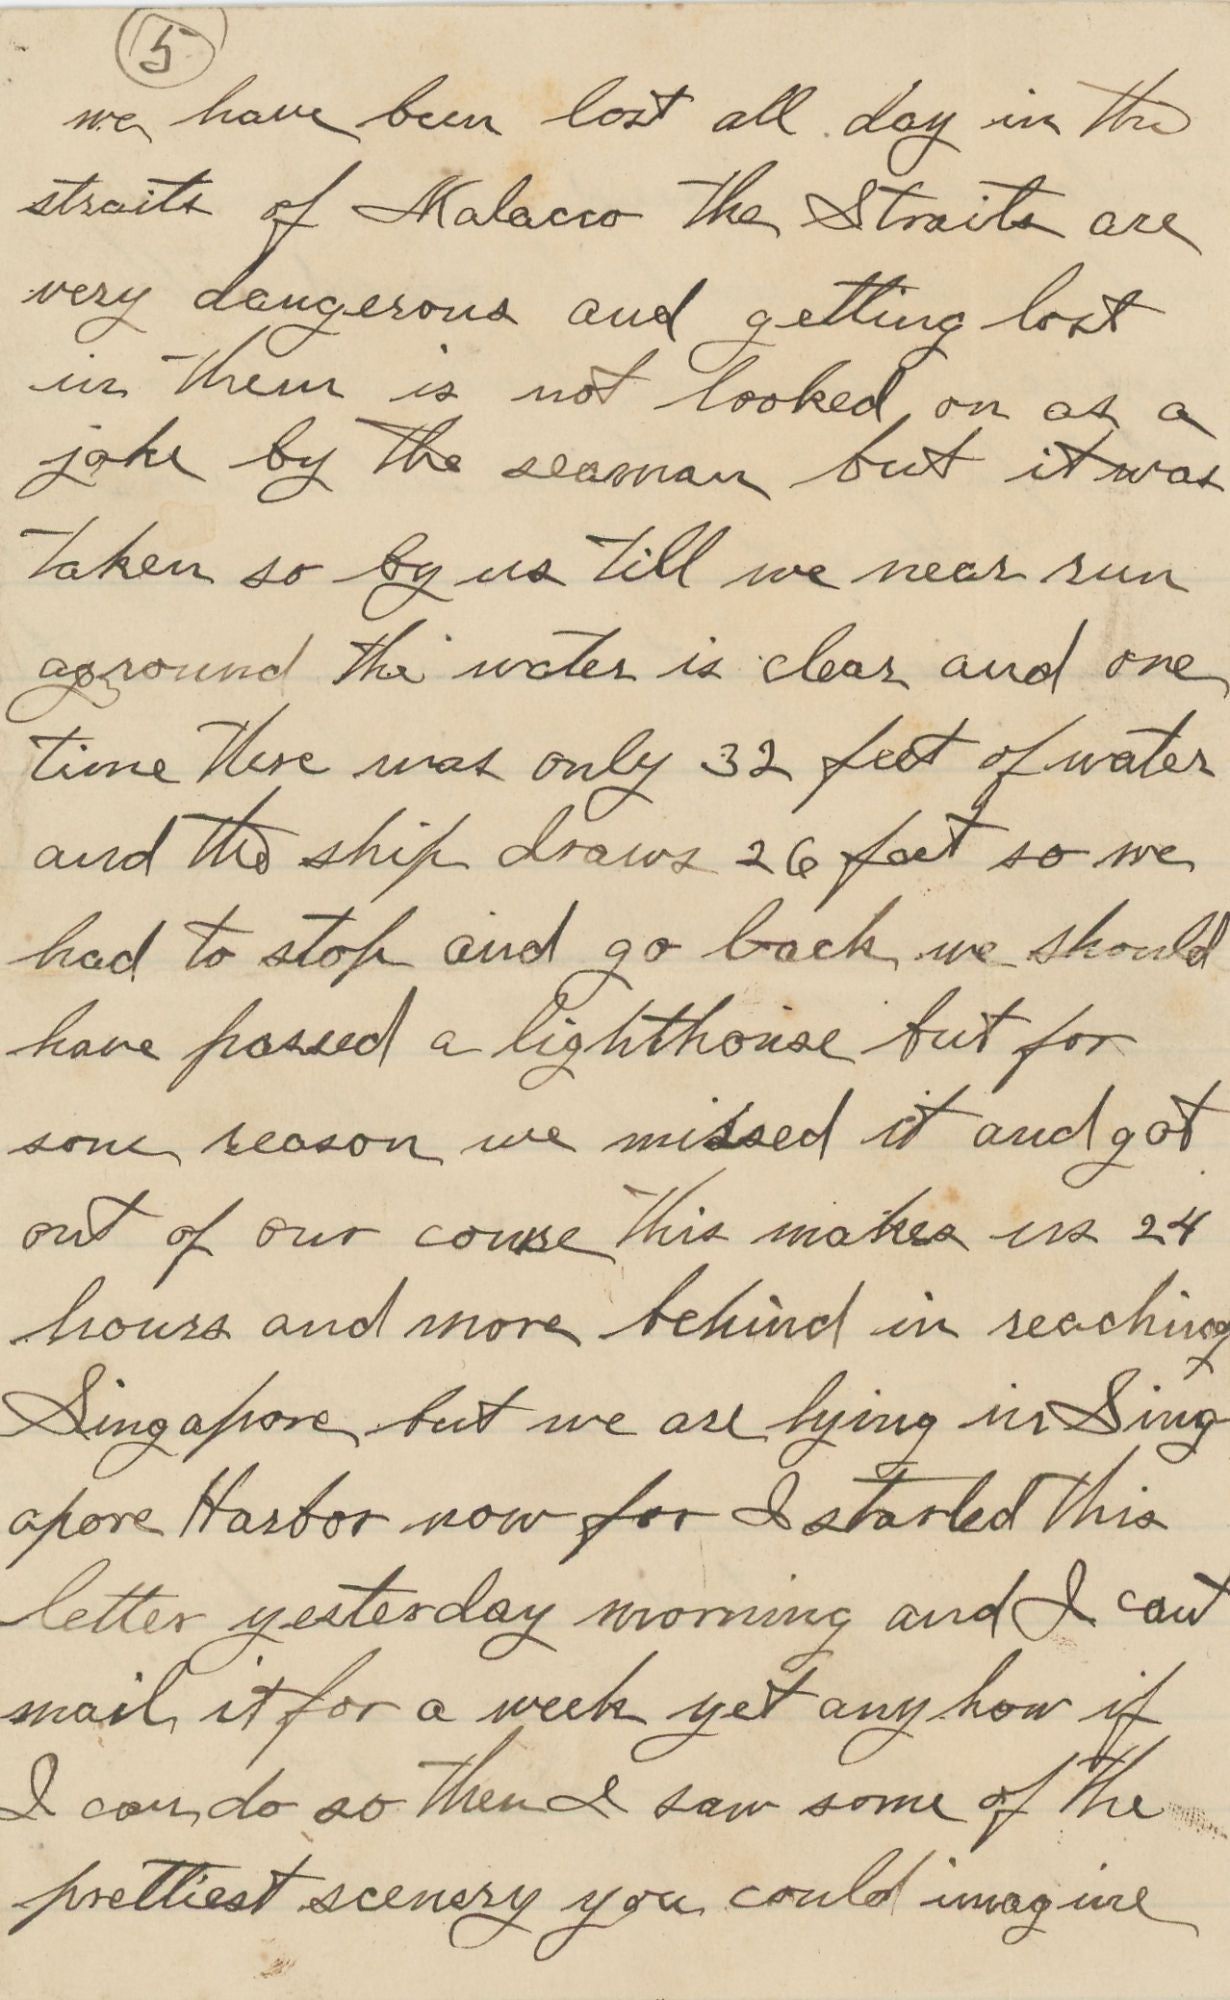 5
we have been lost all day in the
straits of Malacco the Straits are
very dangerous and getting lost
in them is not looked on as a
joke by the seaman but it was
taken so by us till we near run
aground the water is clear and one
time there was only 32 feet of water
and the ship draws 26 feet so we
had to stop and go back we should
have passed a lighthouse but for
some reason we missed it and got
out of our course this makes us 24
hours and more behind in reaching
Singapore but we are lying in Sing
apore Harbor now for I started this
letter yesterday morning and I cant
mail it for a week yet anyhow if
I can do so then I saw some of the
prettiest scenery you could imagine